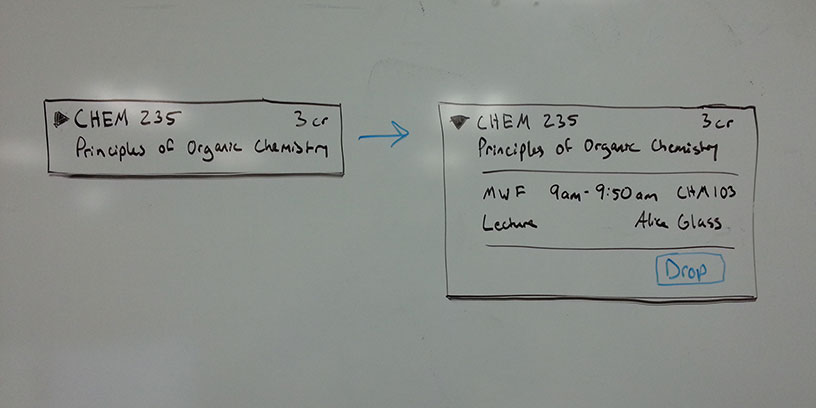 CHEM 235 3cr
Principles of Organic Chemistry
CHEM 235 3cr
Principles of Organic Chemistry
MWF 9am-9:50am CHM103
Lecture Alice Glass
Drop